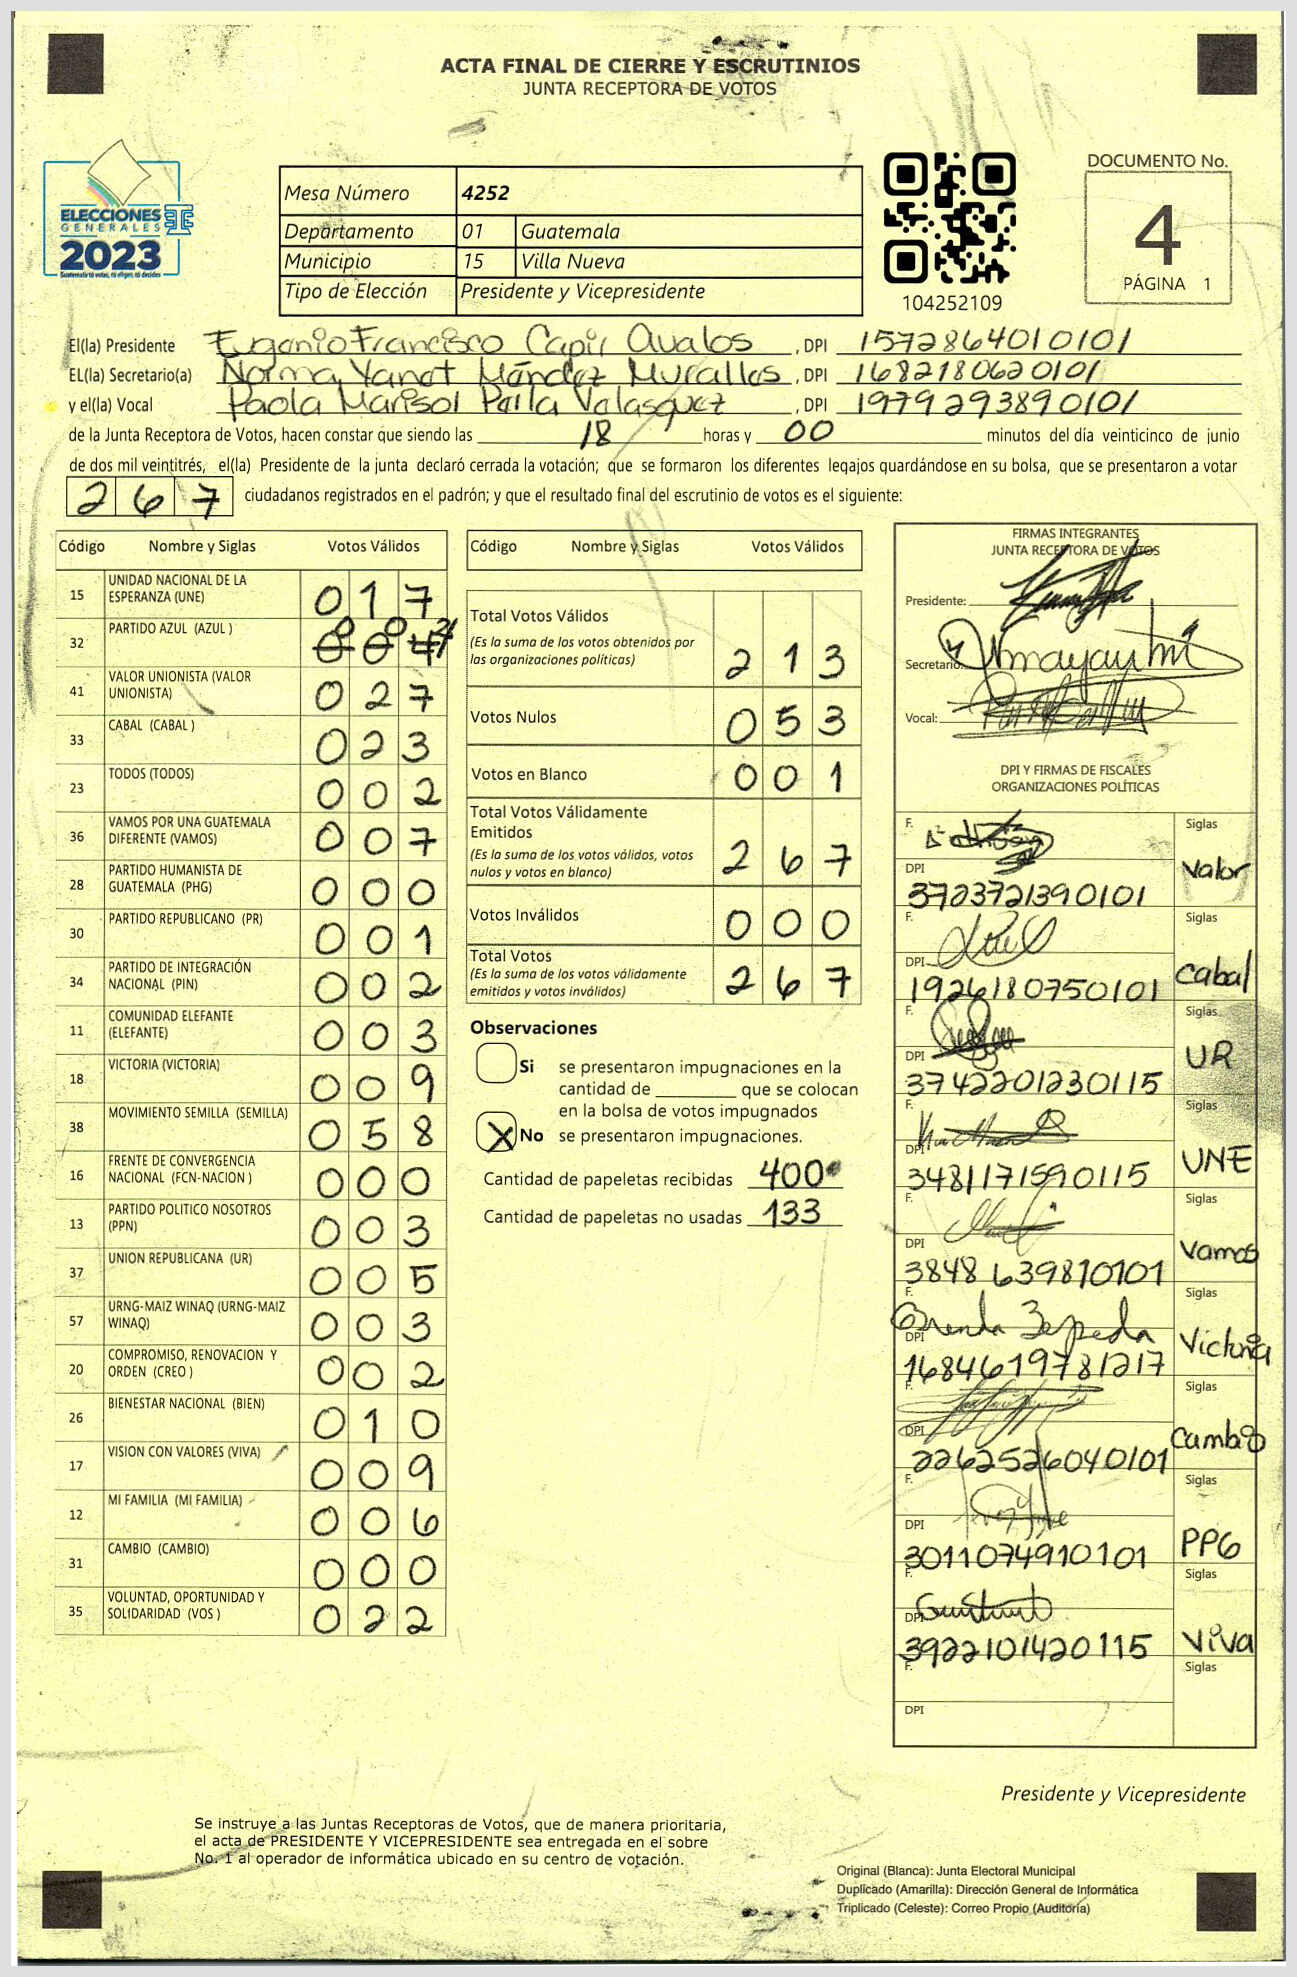 ACTA FINAL DE CIERRE Y ESCRUTINIOS
JUNTA RECEPTORA DE VOTOS
ELECCIONES
GENERALES
2023
Guatemala tú votas, tú eliges, tú decides
Mesa Número 4252
Departamento 01 Guatemala
Municipio 15 Villa Nueva
Tipo de Elección Presidente y Vicepresidente
104252109
DOCUMENTO No.
4
PÁGINA 1
El(la) Presidente Eugenio Francisco Capir Avalos, DPI 1572864010101
EL(la) Secretario(a) Norma Yanet Méndez Murallas, DPI 1682180620101
y el(la) Vocal Paola Marisol Velasquez, DPI 1979293890101
de la Junta Receptora de Votos, hacen constar que siendo las 18 horas y 00 minutos del día veinticinco de junio
de dos mil veintitrés, el(la) Presidente de la junta declaró cerrada la votación; que se formaron los diferentes legajos quardándose en su bolsa, que se presentaron a votar
267 ciudadanos registrados en el padrón; y que el resultado final del escrutinio de votos es el siguiente:
Código Nombre y Siglas Votos Válidos
15 UNIDAD NACIONAL DE LA ESPERANZA (UNE) 017
32 PARTIDO AZUL (AZUL )
41 VALOR UNIONISTA (VALOR UNIONISTA) 027
33 CABAL (CABAL ) 023
23 TODOS (TODOS) 002
36 VAMOS POR UNA GUATEMALA DIFERENTE (VAMOS) 007
28 PARTIDO HUMANISTA DE GUATEMALA (PHG) 000
30 PARTIDO REPUBLICANO (PR) 001
34 PARTIDO DE INTEGRACIÓN NACIONAL (PIN) 002
11 COMUNIDAD ELEFANTE (ELEFANTE) 003
18 VICTORIA (VICTORIA) 009
38 MOVIMIENTO SEMILLA (SEMILLA) 058
16 FRENTE DE CONVERGENCIA NACIONAL (FCN-NACION ) 000
13 PARTIDO POLITICO NOSOTROS (PPN) 003
37 UNION REPUBLICANA (UR) 005
57 URNG-MAIZ WINAQ (URNG-MAIZ WINAQ) 003
20 COMPROMISO, RENOVACION Y ORDEN (CREO ) 002
26 BIENESTAR NACIONAL (BIEN) 010
17 VISION CON VALORES (VIVA) 009
12 MI FAMILIA (MI FAMILIA) 006
31 CAMBIO (CAMBIO) 000
35 VOLUNTAD, OPORTUNIDAD Y SOLIDARIDAD (VOS ) 022
Código Nombre y Siglas Votos Válidos
Total Votos Válidos 213
(Es la suma de los votos obtenidos por
las organizaciones políticas)
Votos Nulos 053
Votos en Blanco 001
Total Votos Válidamente
Emitidos 267
(Es la suma de los votos válidos, votos
nulos y votos en blanco)
Votos Inválidos 000
Total Votos 267
(Es la suma de los votos válidamente
emitidos y votos inválidos)
Observaciones
Si se presentaron impugnaciones en la
cantidad de ________ que se colocan
en la bolsa de votos impugnados
X No se presentaron impugnaciones.
Cantidad de papeletas recibidas 400
Cantidad de papeletas no usadas 133
FIRMAS INTEGRANTES
JUNTA RECEPTORA DE VOTOS
Presidente:
Secretario:
Vocal:
DPI Y FIRMAS DE FISCALES
ORGANIZACIONES POLÍTICAS
F. Siglas
DPI Valor
3723721390101
F. Siglas
DPI Cabal
1926180750101
F. Siglas
DPI UR
3742201230115
F. Siglas
DPI UNE
3481171590115
F. Siglas
DPI Vamos
3848639810101
F. Brenda Zepeda Siglas
DPI Victoria
1684619781217
F. Siglas
DPI Cambio
2262526040101
F. Siglas
DPI PPG
3011074910101
F. Siglas
DPI Viva
3922101420115
F. Siglas
DPI
Presidente y Vicepresidente
Se instruye a las Juntas Receptoras de Votos, que de manera prioritaria,
el acta de PRESIDENTE Y VICEPRESIDENTE sea entregada en el sobre
No. 1 al operador de informática ubicado en su centro de votación.
Original (Blanca): Junta Electoral Municipal
Duplicado (Amarilla): Dirección General de Informática
Triplicado (Celeste): Correo Propio (Auditoría)